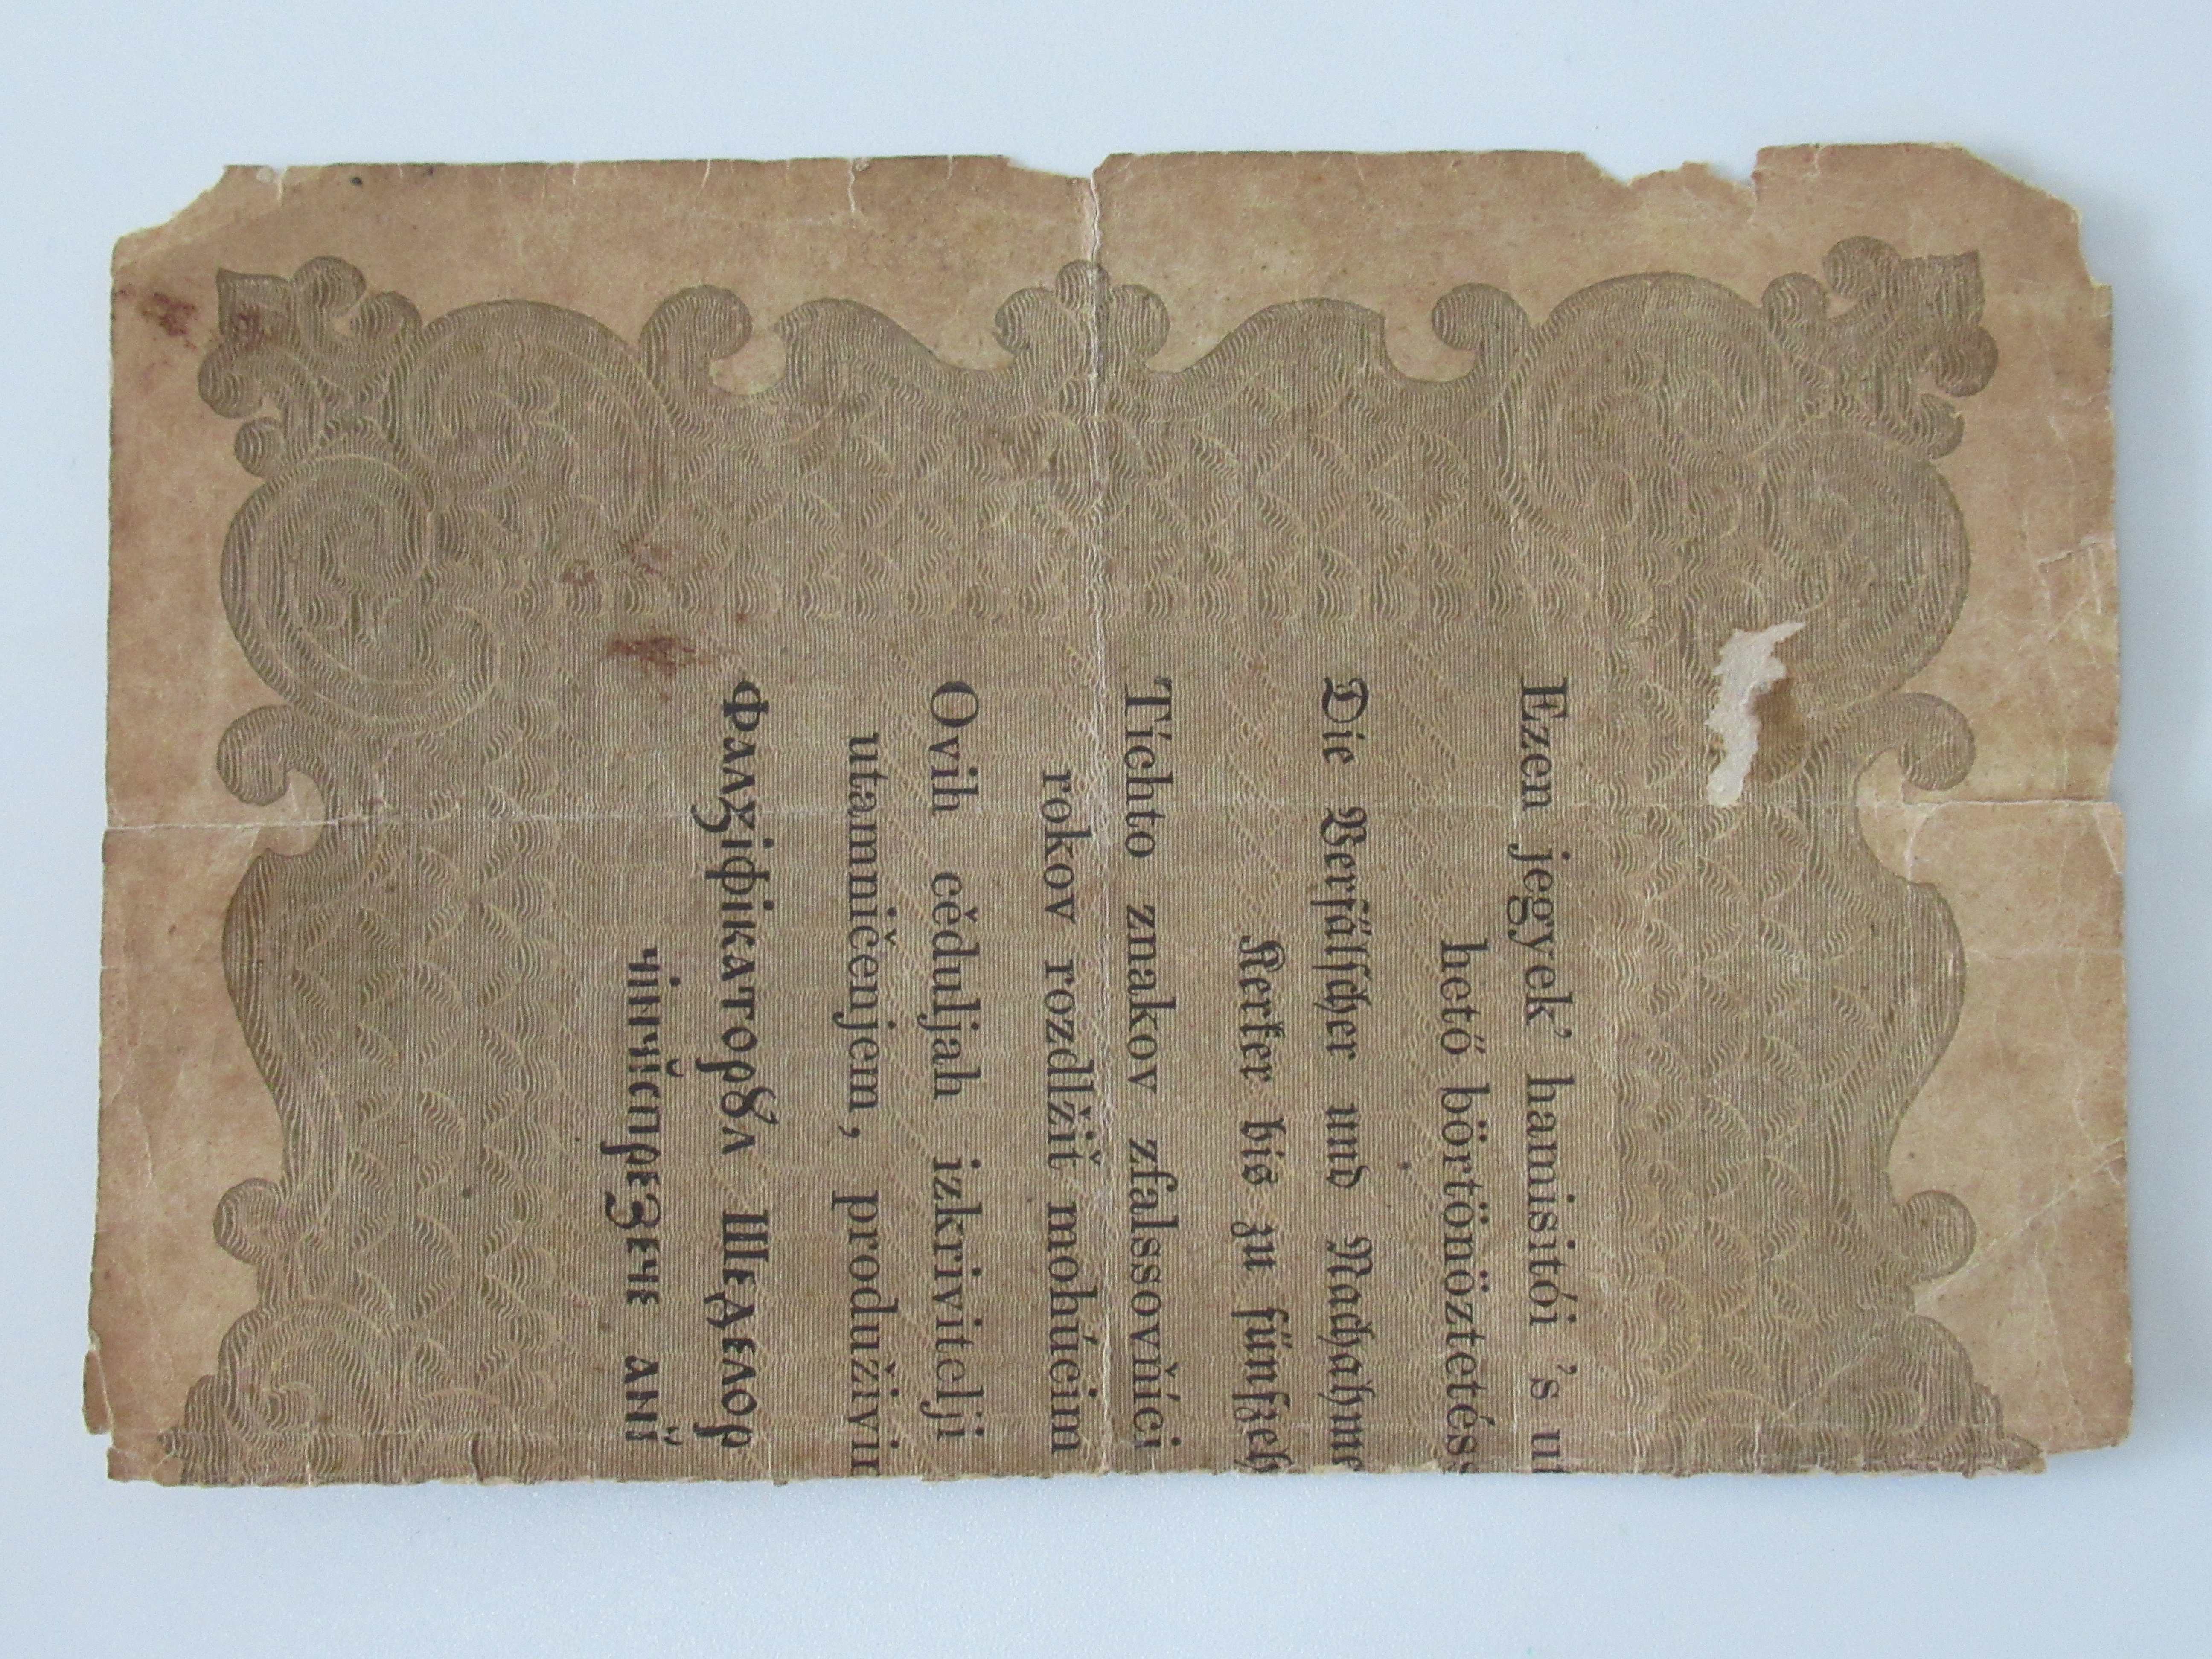 Ezen jegyek’ hamisitói ’s u
hető börtönöztetés
Die Verfälscher und Nachahme
Kerker bis zu fünfzeh
Tíchto znakov zfalssovňíci
rokov rozdlžiť mohúcim
Ovih cěduljah izkrivitelji
utamničenjem, produživi
Фалꙁіфікаторꙋл Шедєлор
чінчĭспрєꙁєчє анĭ